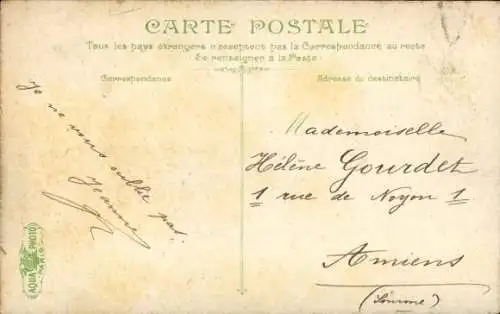 CARTE POSTALE
Tous les pays étrangers n'acceptent pas la Correspondance au recto
Se renseigner à la Poste
Correspondance
Adresse du destinataire
Je ne vous oublie pas.
Jeanne
Mademoiselle
Hélène Gourdet
1 rue de Noyon 1
Amiens
(Somme)
AQUA PHOTO
PARIS